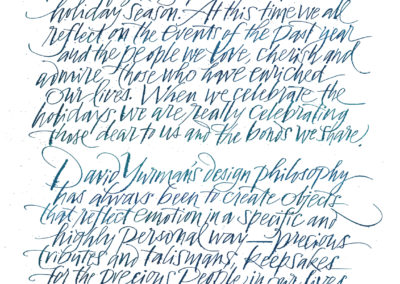 holiday season. At this time we all
reflect on the events of the past year
and the people we love, cherish and
admire, those who have enriched
our lives. When we celebrate the
holidays, we are really celebrating
those dear to us and the bonds we share.
David Yurman's design philosophy
has always been to create objects
that reflect emotion in a specific and
highly personal way—precious
tributes and talismans, keepsakes
for the precious people in our lives